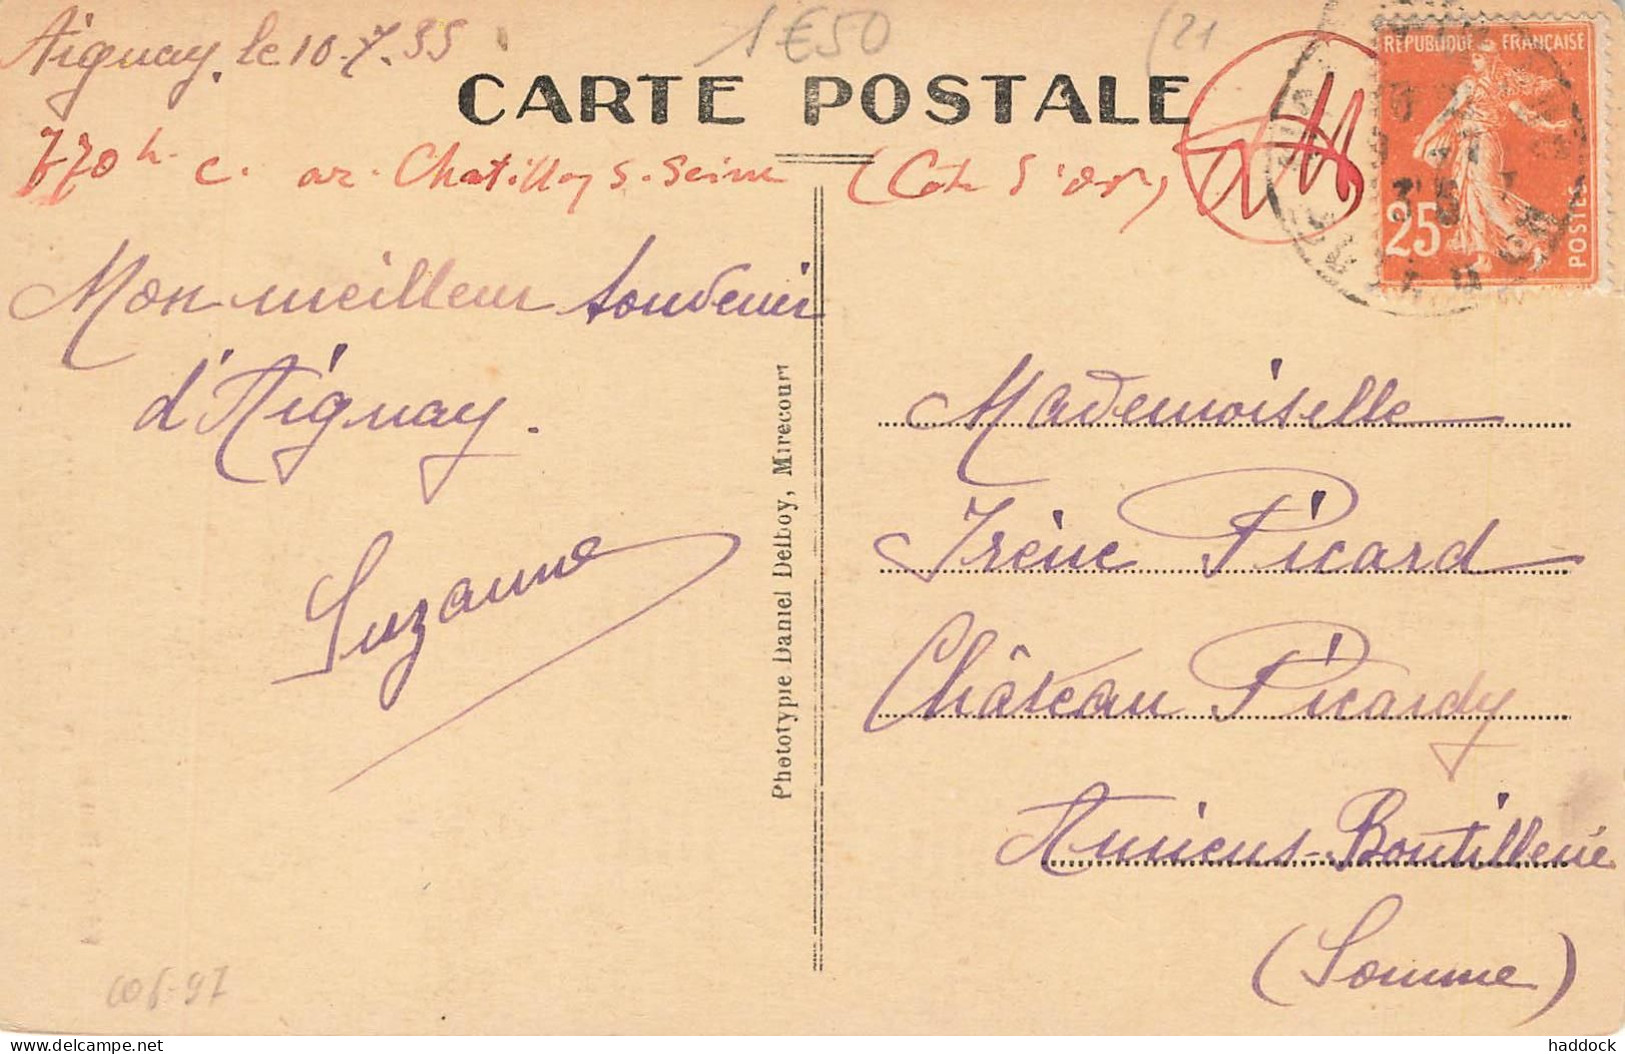 1€50
(21
Aignay, le 10.7.35
CARTE POSTALE
RÉPUBLIQUE FRANÇAISE
25
POSTES
770 h. c. ar. Chatillon S. Seine (Cote d'or)
Mon meilleur souvenir
d'Aignay.
Suzanne
Phototypie Daniel Delboy, Mirecourt
Mademoiselle
Irène Picard
Château Picardy
Amiens-Boutillerie
(Somme)
haddock
delcampe.net